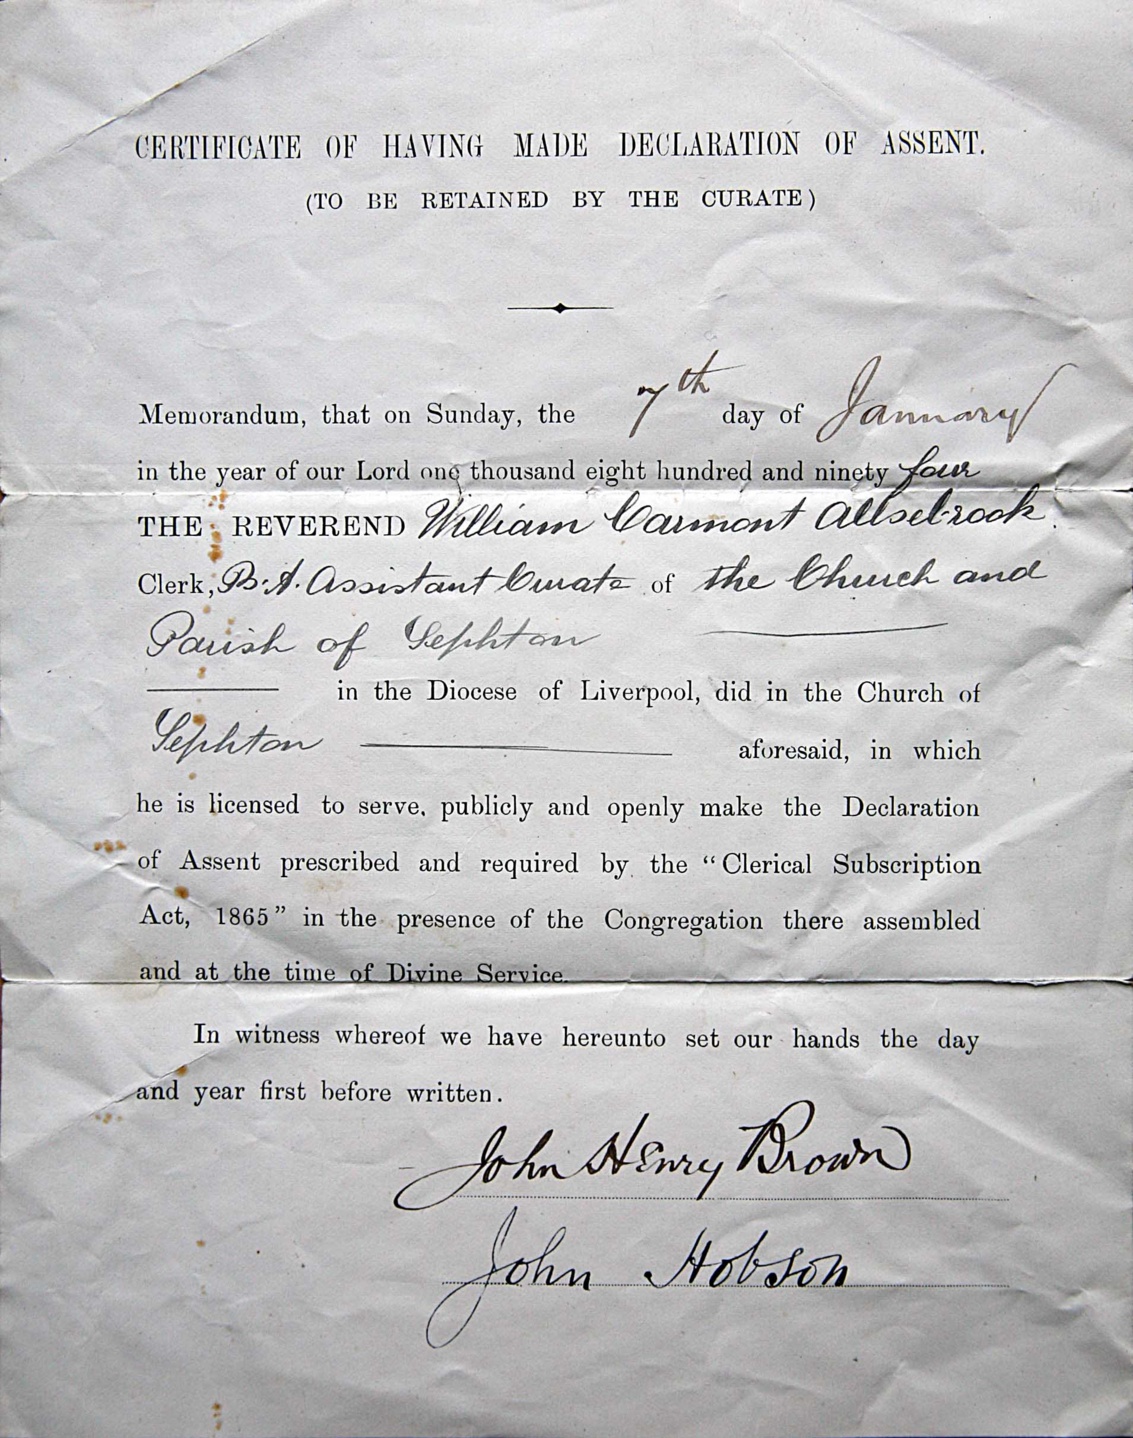 CERTIFICATE OF HAVING MADE DECLARATION OF ASSENT.
(TO BE RETAINED BY THE CURATE)
Memorandum, that on Sunday, the 7th day of January
in the year of our Lord one thousand eight hundred and ninety four
THE REVEREND William Carmont Allsebrook
Clerk, B.A. Assistant Curate of the Church and
Parish of Sephton
in the Diocese of Liverpool, did in the Church of
Sephton aforesaid, in which
he is licensed to serve, publicly and openly make the Declaration
of Assent prescribed and required by the "Clerical Subscription
Act, 1865" in the presence of the Congregation there assembled
and at the time of Divine Service.
In witness whereof we have hereunto set our hands the day
and year first before written.
John Henry Brown
John Hobson